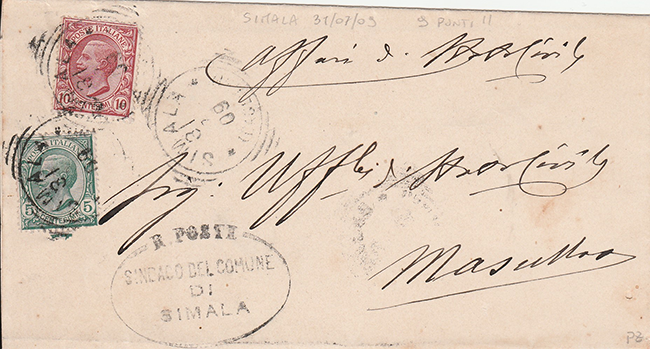 SIMALA 31/07/09 9 PONTI 11
POSTE ITALIANE
10 CENTESIMI 10
SIMALA
31
09
Affari di Stato Civile
POSTE ITALIANE
5 CENTESIMI 5
Sig. Uffle di Stato Civile
Masullas
R. POSTE
SINDACO DEL COMUNE
DI
SIMALA
PZ